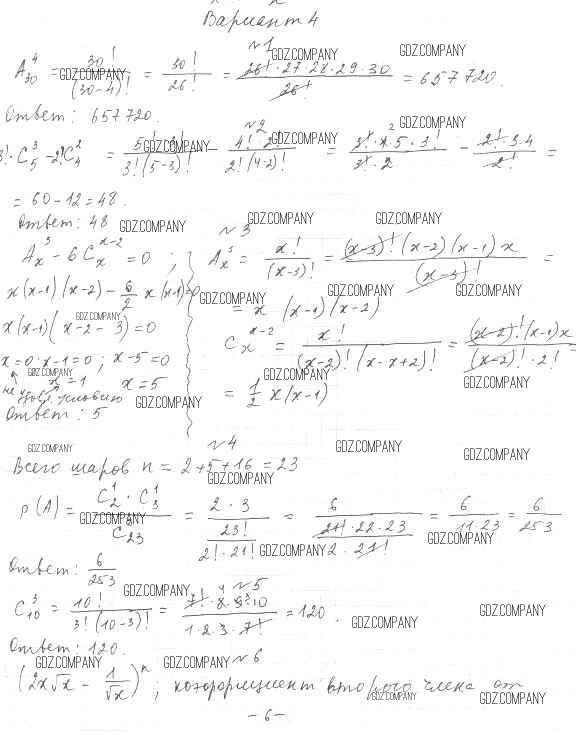 Вариант 4
№1
A_{30}^4 = 30!/(30-4)! = 30!/26! = 26!·27·28·29·30/26! = 657720.
Ответ: 657720.
№2
3!·C_5^3 - 2!C_4^2 = 5!·3!/3!(5-3)! - 4!·2!/2!(4-2)! = 3!·4·5·3!/3!·2 - 2!·3·4/2! =
= 60-12=48.
Ответ: 48
№3
A_x^3 - 6C_x^{x-2} = 0 ;
x(x-1)(x-2) - 6/2 x(x-1)=0
x(x-1)(x-2-3)=0
x=0; x-1=0; x-5=0
x=1 x=5
не удовл. условию
Ответ: 5
A_x^3 = x!/(x-3)! = (x-3)!(x-2)(x-1)x/(x-3)! =
= x(x-1)(x-2)
C_x^{x-2} = x!/(x-2)!(x-x+2)! = (x-2)!(x-1)x/(x-2)!·2! =
= 1/2 x(x-1)
№4
Всего шаров n = 2+5+16 = 23
p(A) = C_2^1·C_3^1/C_{23}^2 = 2·3/(23!/2!·21!) = 6/(21!·22·23/2·21!) = 6/11·23 = 6/253
Ответ: 6/253
№5
C_{10}^3 = 10!/3!(10-3)! = 7!·8·9·10/1·2·3·7! = 120.
Ответ: 120.
№6
(2x√x - 1/√x)^n; коэффициент второго члена от
-6-
GDZ.COMPANY